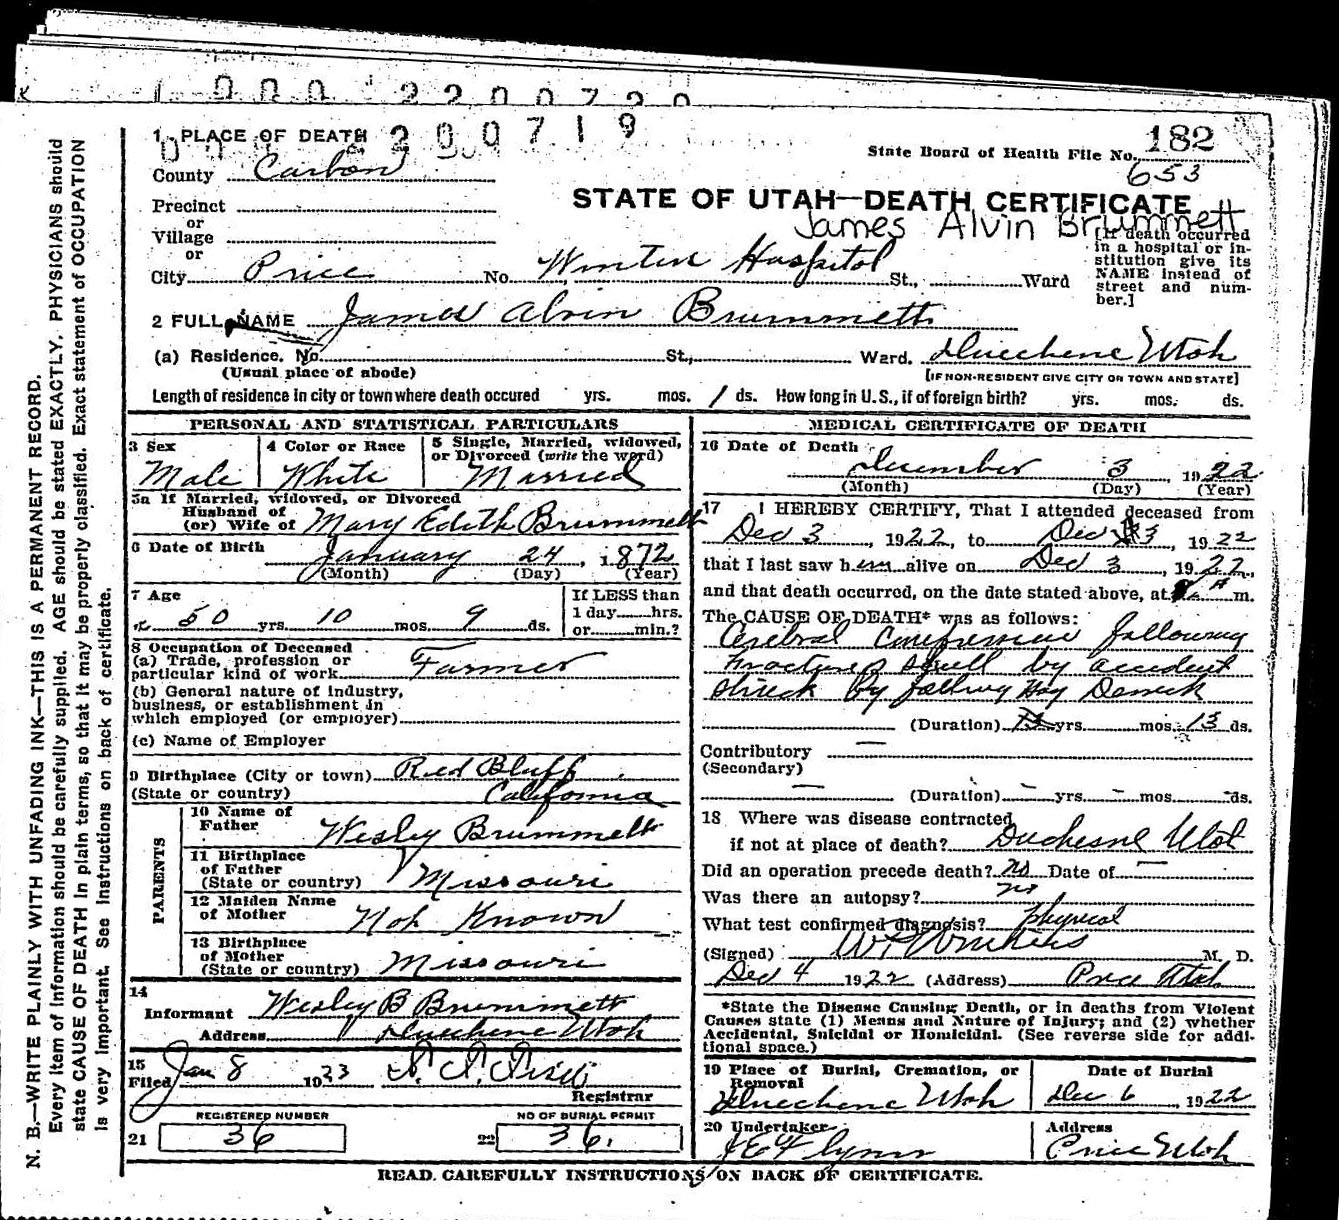 1 000 2200720
000 2200719
1 PLACE OF DEATH
County Carbon
State Board of Health File No. 182
653
Precinct
or
Village
or
STATE OF UTAH—DEATH CERTIFICATE
James Alvin Brummett
[If death occurred in a hospital or institution give its NAME instead of street and number.]
City Price No. Hospital St., Ward
2 FULL NAME James Alvin Brummett
(a) Residence. No. St., Ward. Duechene Utah
(Usual place of abode) [IF NON-RESIDENT GIVE CITY OR TOWN AND STATE]
Length of residence in city or town where death occured yrs. mos. 1 ds. How long in U.S., if of foreign birth? yrs. mos. ds.
PERSONAL AND STATISTICAL PARTICULARS
3 Sex Male
4 Color or Race White
5 Single, Married, widowed, or Divorced (write the word) Married
5a If Married, widowed, or Divorced
Husband of
(or) Wife of Mary Edith Brummett
6 Date of Birth January 24, 1872
(Month) (Day) (Year)
7 Age 50 yrs. 10 mos. 9 ds.
If LESS than
1 day......hrs.
or......min.?
8 Occupation of Deceased
(a) Trade, profession or
particular kind of work Farmer
(b) General nature of industry,
business, or establishment in
which employed (or employer)
(c) Name of Employer
9 Birthplace (City or town) Red Bluff
(State or country) California
PARENTS
10 Name of Father Wesley Brummett
11 Birthplace of Father (State or country) Missouri
12 Maiden Name of Mother Not Known
13 Birthplace of Mother (State or country) Missouri
14
Informant Wesley B Brummett
Address Duechene Utah
15
Filed Jan 8 1923
Registrar
REGISTERED NUMBER
21 36
NO OF BURIAL PERMIT
22 36.
MEDICAL CERTIFICATE OF DEATH
16 Date of Death December 3, 1922
(Month) (Day) (Year)
17 I HEREBY CERTIFY, That I attended deceased from
Dec 3, 1922, to Dec 3, 1922
that I last saw him alive on Dec 3, 1922,
and that death occurred, on the date stated above, at A m.
The CAUSE OF DEATH* was as follows:
Cerebral Compression following
fractured skull by accident
struck by falling Hay Derrick
(Duration) yrs. mos. 13 ds.
Contributory —
(Secondary)
— (Duration) – yrs. – mos. – ds.
18 Where was disease contracted
if not at place of death? Duchesne Utah
Did an operation precede death? no Date of —
Was there an autopsy? no
What test confirmed diagnosis? physical
(Signed) M. D.
Dec 4 1922 (Address) Price Utah
*State the Disease Causing Death, or in deaths from Violent
Causes state (1) Means and Nature of Injury; and (2) whether
Accidental, Suicidal or Homicidal. (See reverse side for addi-
tional space.)
19 Place of Burial, Cremation, or Removal
Duechene Utah
Date of Burial
Dec 6, 1922
20 Undertaker
J E Flynn
Address
Price Utah
READ CAREFULLY INSTRUCTIONS ON BACK OF CERTIFICATE.
N. B.—WRITE PLAINLY WITH UNFADING INK—THIS IS A PERMANENT RECORD.
Every item of information should be carefully supplied. AGE should be stated EXACTLY. PHYSICIANS should
state CAUSE OF DEATH in plain terms, so that it may be properly classified. Exact statement of OCCUPATION
is very important. See instructions on back of certificate.